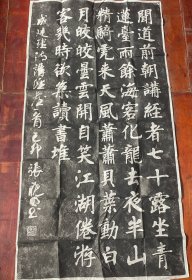 聞道前朝講經者七十露坐青
蓮臺雨餘海客化龍去夜半山
精騎虎來天風蕭蕭貝葉動白
月皎皎曇雲開自笑江湖倦游
客幾時欲系讀書堆